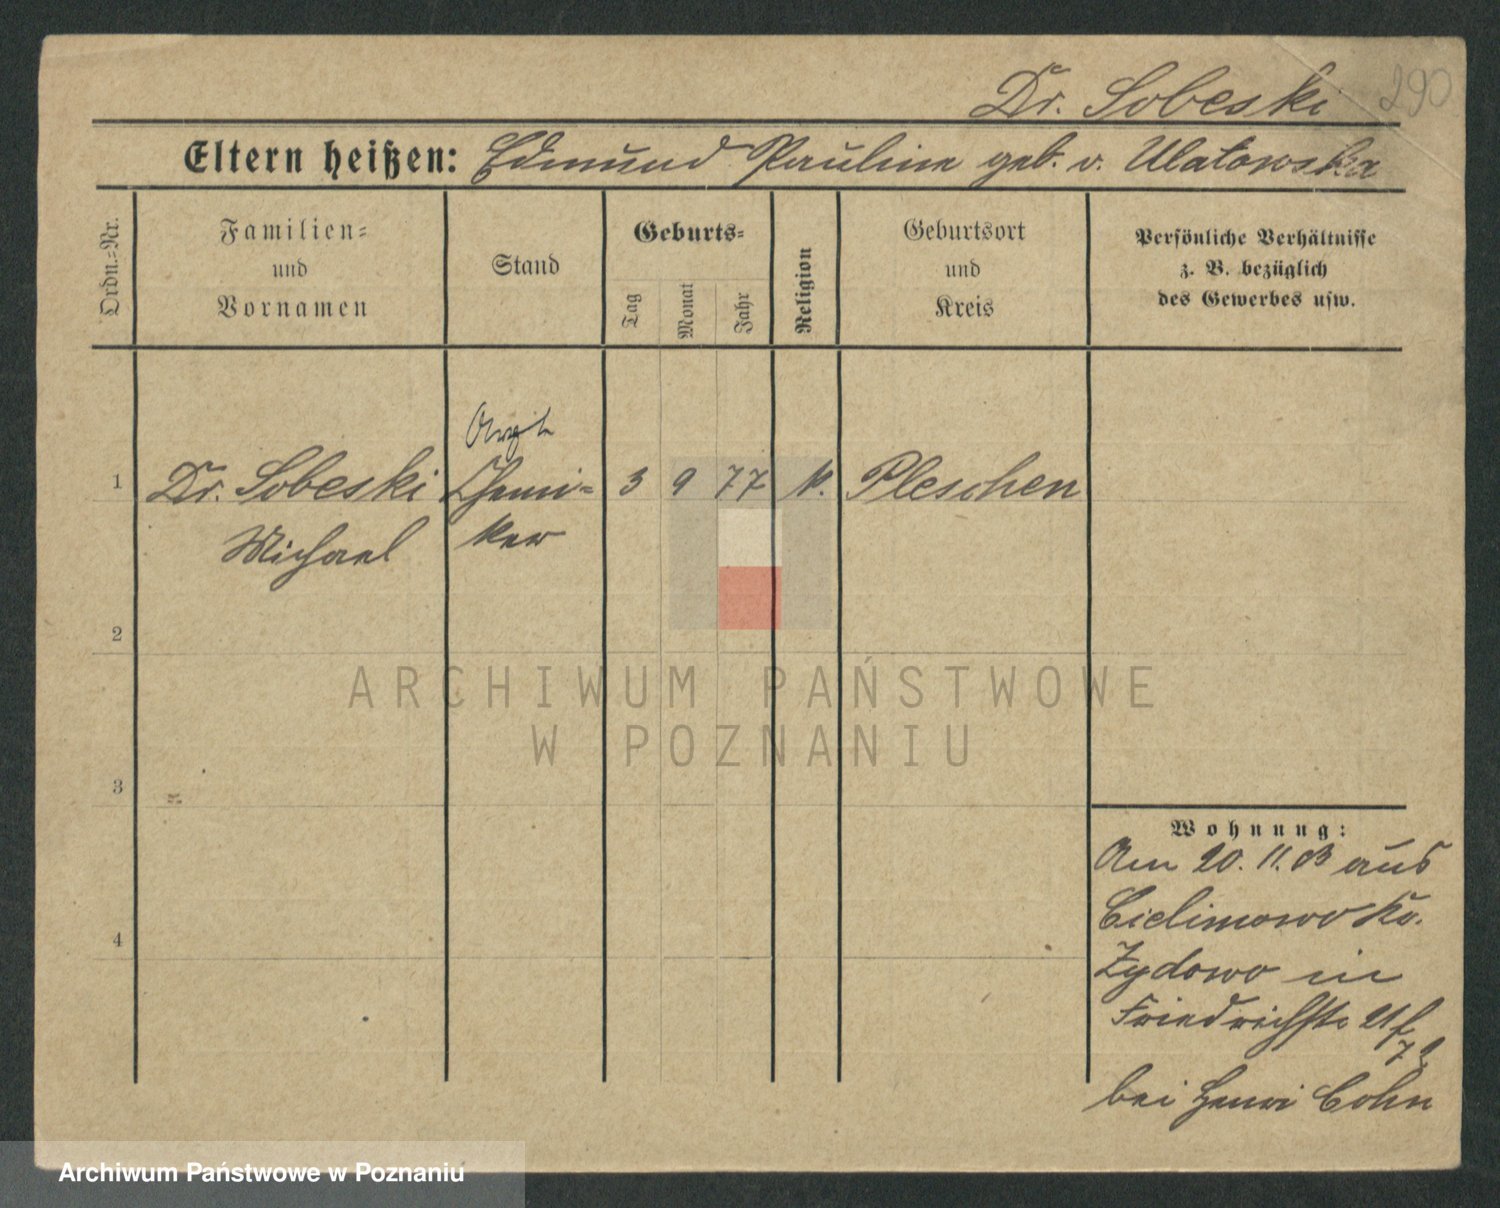 290
Dr. Sobeski
Eltern heißen: Edmund Pauline geb. v. Ulatowska
Ordn.-Nr.
Familien-
und
Vornamen
Stand
Geburts-
Tag
Monat
Jahr
Religion
Geburtsort
und
Kreis
Persönliche Verhältnisse
z. B. bezüglich
des Gewerbes usw.
1
Dr. Sobeski
Michael
Chemi-
ker
3 9 77 k. Pleschen
2
3
4
Wohnung:
Am 20. 11. 03 aus
Cielimowo Kr.
Zydowo in
Friedrichstr 21
bei Henri Cohn
ARCHIWUM PAŃSTWOWE
W POZNANIU
Archiwum Państwowe w Poznaniu